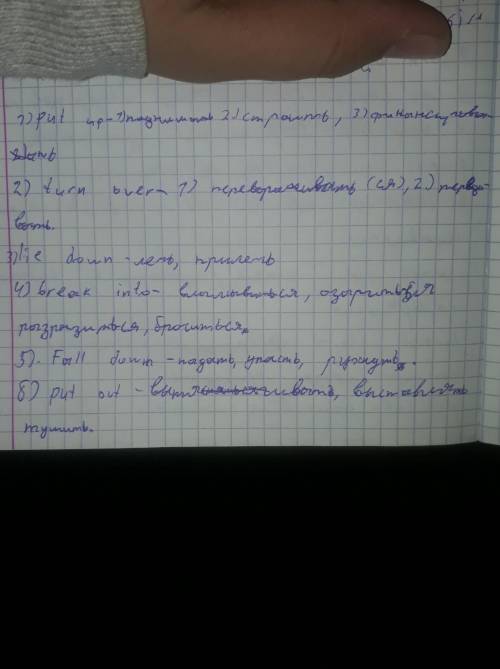 1) put up-1) поднимать 2) строить, 3) финансировать
2) turn over- 1) переворачивать (ся), 2)
вать.
3) lie down - лечь, прилечь
4) break into - вламываться, озариться
разразиться, броситься,
5). Fall down - падать, упасть, рухнуть.
6) put out - выставлять
тушить.